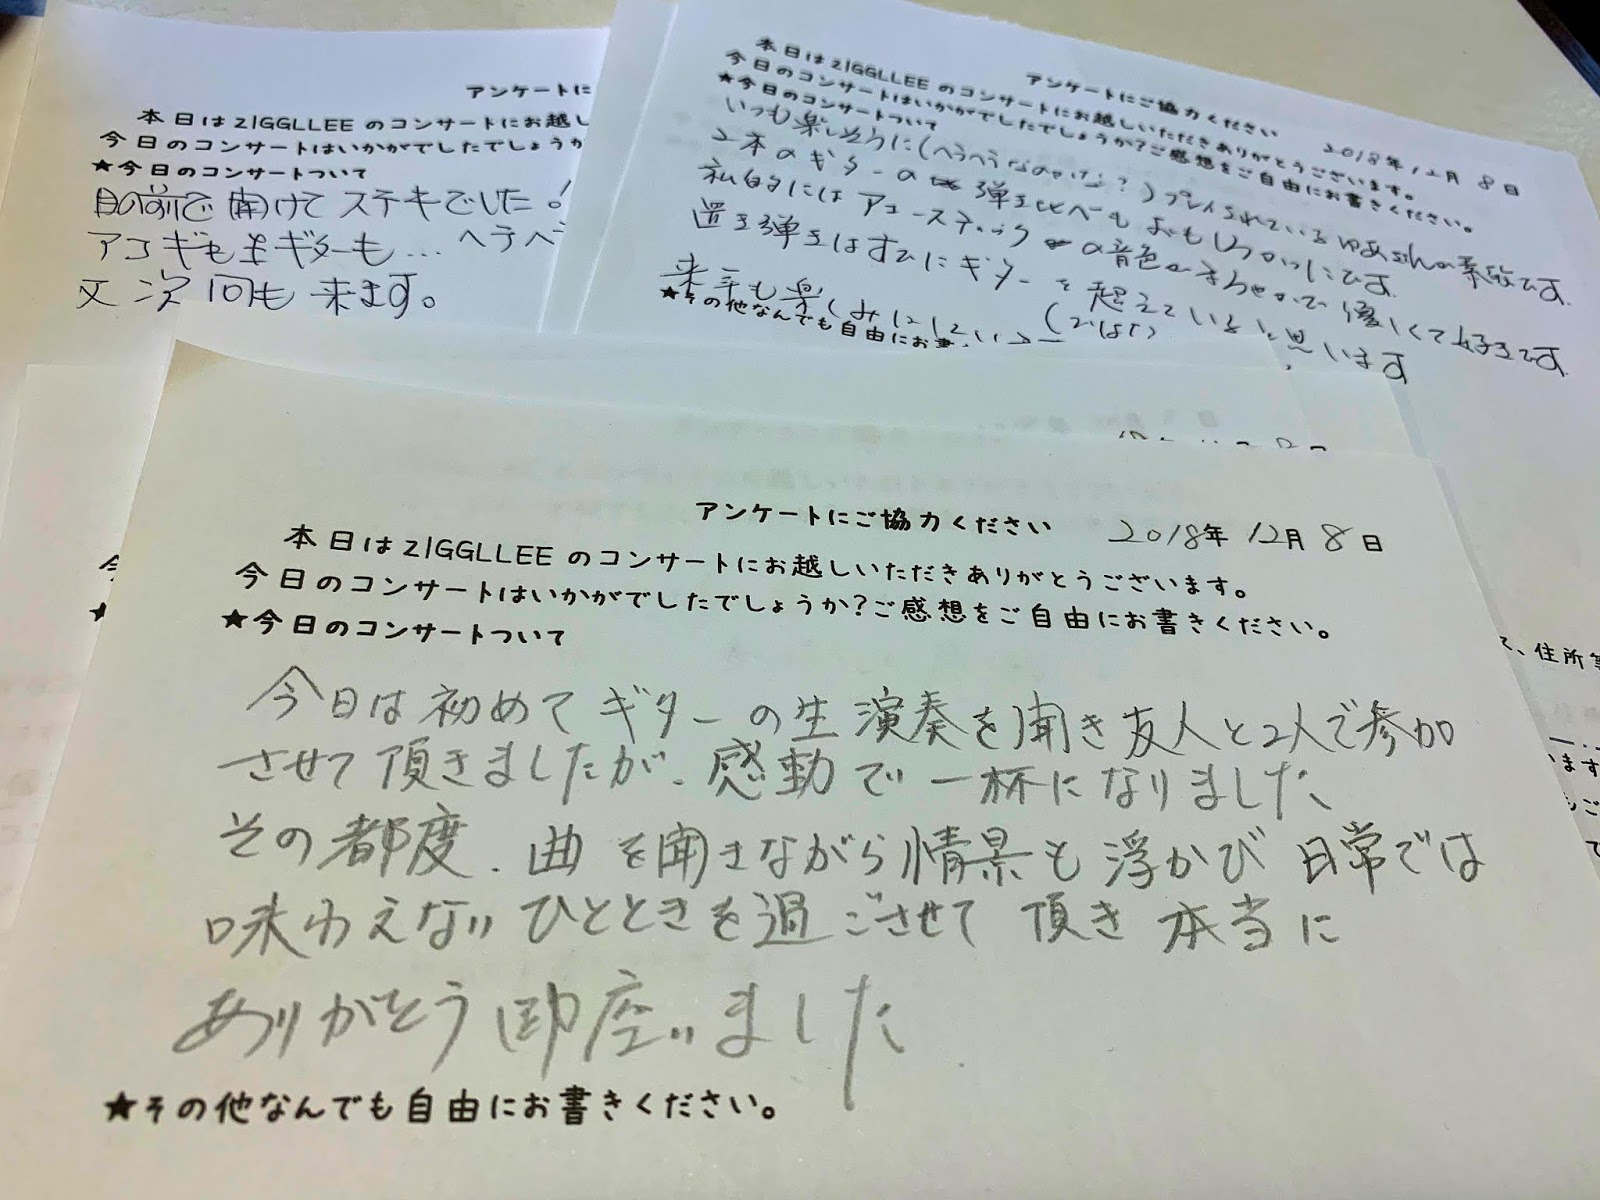 アンケートに
本日はZIGGLLEEのコンサートにお越し
今日のコンサートはいかがでしたでしょうか
★今日のコンサートついて
目の前で聞けてステキでした!
アコギも ギターも… ヘラヘ
又次回も来ます。
アンケートにご協力ください
2018年12月8日
本日はZIGGLLEEのコンサートにお越しいただきありがとうございます。
今日のコンサートはいかがでしたでしょうか?ご感想をご自由にお書きください。
★今日のコンサートついて
いつも楽しそうに(ヘラヘラなのかな?)プレイされているゆあさんの素敵です。
2本のギターの弾き比べもおもしろかったです
私的にはアコースティックの音色がきわやかで優しくて好きです。
置き弾きはすでにギターを超えていると思います
来年も楽しみにしています
★その他なんでも自由にお書
アンケートにご協力ください 2018年12月8日
本日はZIGGLLEEのコンサートにお越しいただきありがとうございます。
今日のコンサートはいかがでしたでしょうか?ご感想をご自由にお書きください。
★今日のコンサートついて
今日は初めてギターの生演奏を聞き友人と2人で参加
させて頂きましたが、感動で一杯になりました
その都度、曲を聞きながら情景も浮かび日常では
味わえないひとときを過ごさせて頂き本当に
ありがとう御座いました
★その他なんでも自由にお書きください。
て、住所等